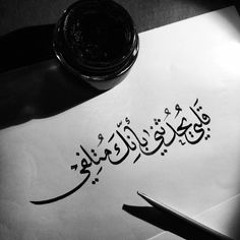 قَلْبِي يُحَدِّثُنِي بِأَنَّكَ مُتْلِفِي